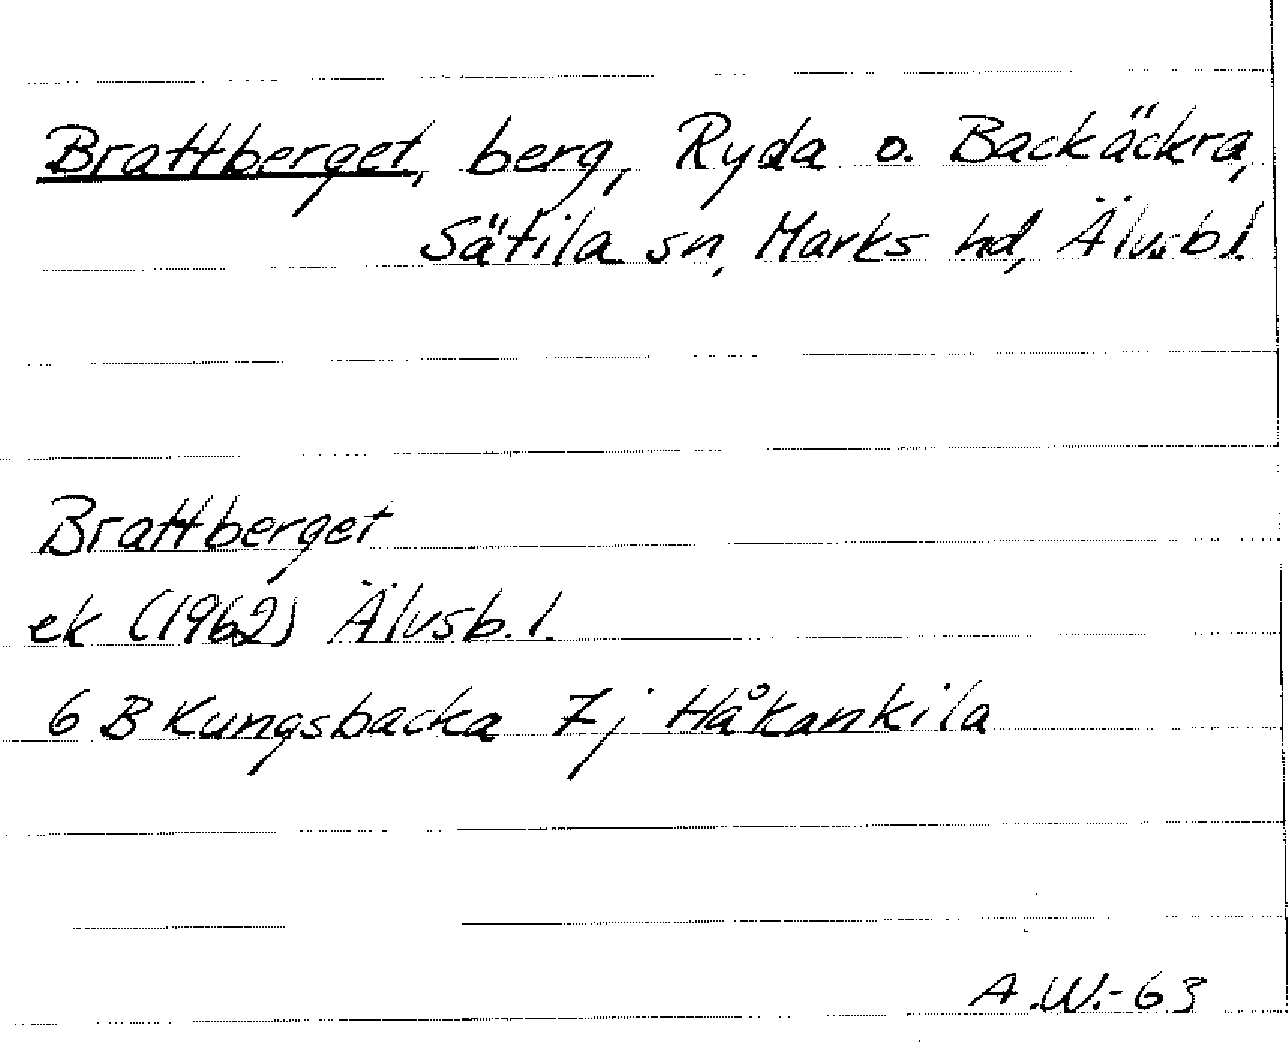 Brattberget, berg, Ryda o. Backäckra,
Sätila sn, Marks hd, Älvsb.l.
Brattberget
ek (1962) Älvsb.l.
6 B Kungsbacka 7j Håkankila
A.W.-63